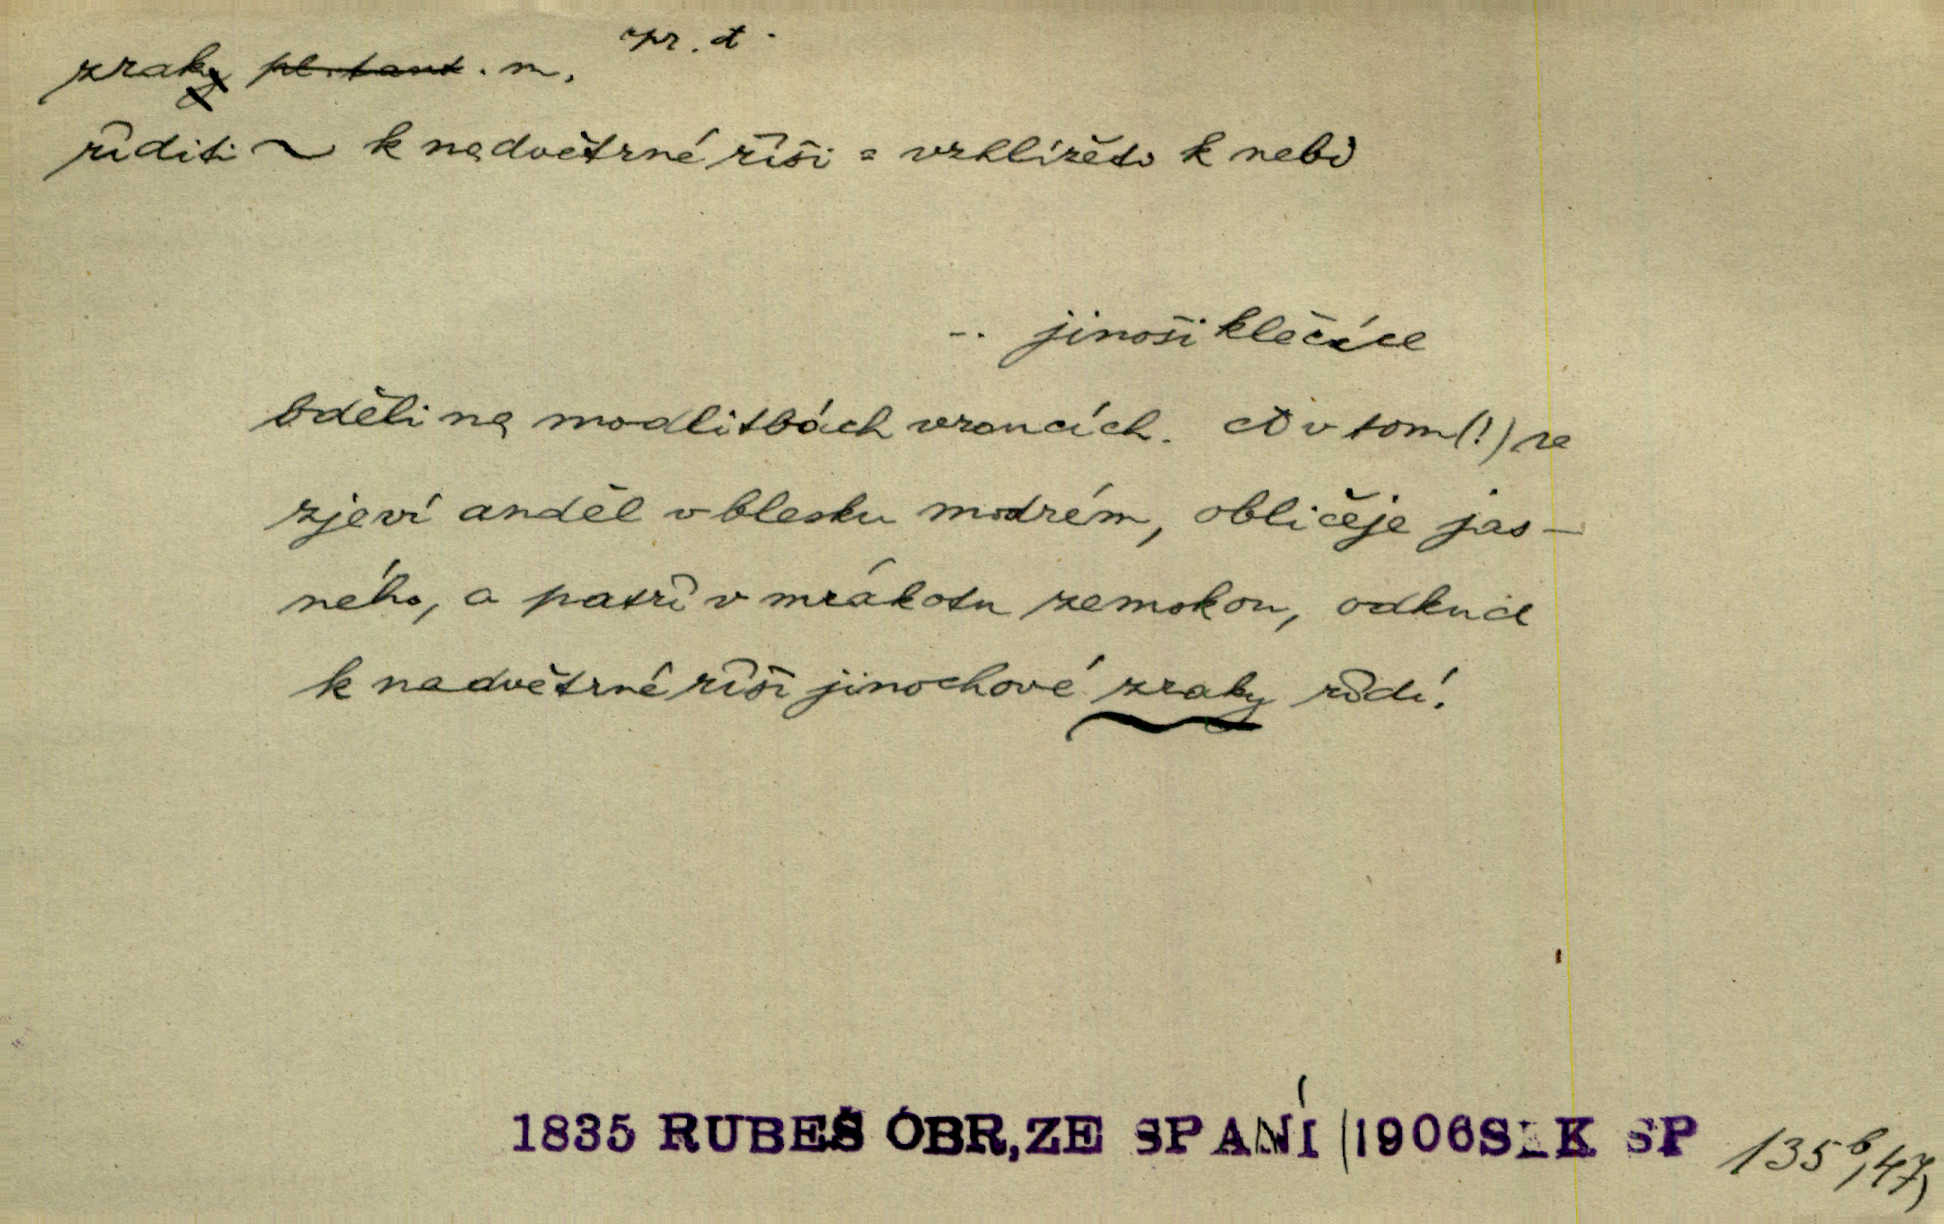 spr. d.
zraky pl. tant. m.
říditi ~ k nadvětrné říši = vzhlížeti k nebi
.. jinoši klečíce
bděli na modlitbách vroucích. A v tom(!) se
zjeví anděl v blesku modrém, obličeje jas-
ného, a patří v mrákotu zemskou, odkud
k nadvětrné říši jinochové zraky řídí.
1835 RUBEŠ OBR,ZE SPANÍ (1906SEK SP
135b,47)